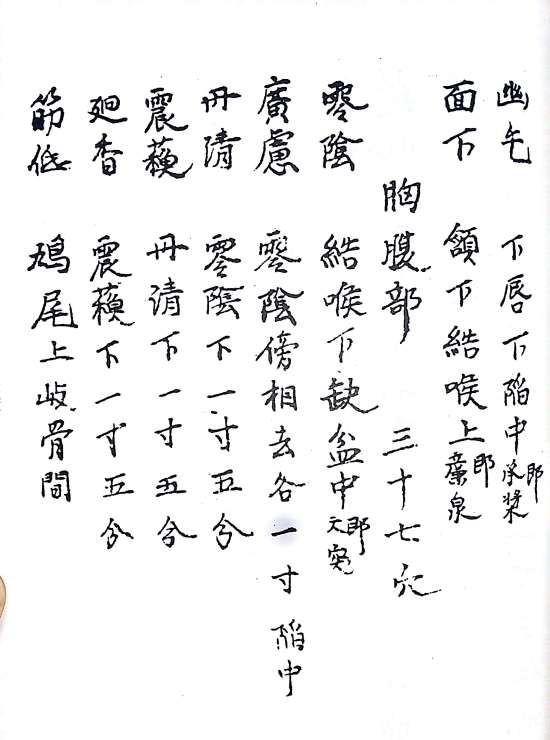 幽乞 下唇下陷中即承漿
面下 頷下結喉上即藨泉
胸腹部 三十七穴
零陰 結喉下缺盆中即天突
廣慮 零陰傍相去各一寸陷中
丹清 零陰下一寸五分
震蘋 丹清下一寸五分
廻香 震蘋下一寸五分
筋低 鳩尾上岐骨間